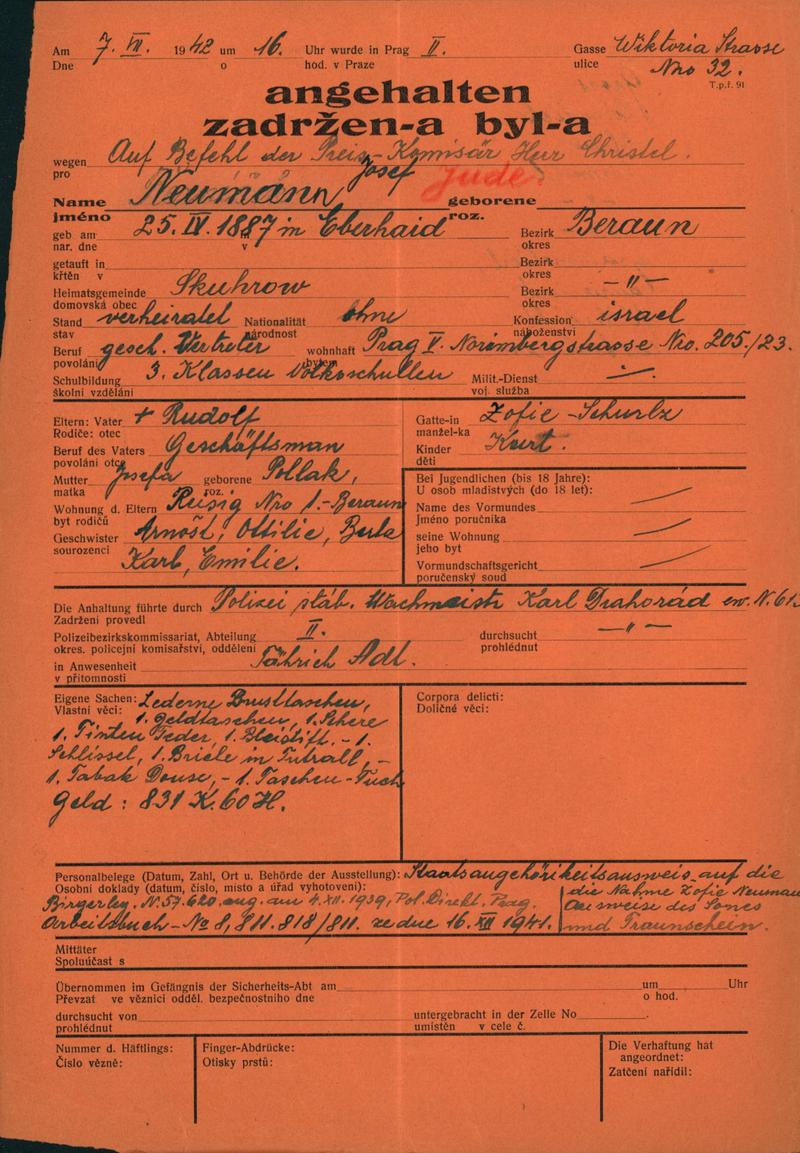 Am 7. VII. 1942 um 16. Uhr wurde in Prag II. Gasse Wiktoria Strasse
Dne o hod. v Praze ulice Nro 32.
T.p.ř. 91
angehalten
zadržen-a byl-a
wegen Auf Befehl der Preis-Komisär Herr Christel.
pro
Name Neumann Josef Jude. geborene
jméno roz.
geb am 25. IV. 1887 in Eberhaid Bezirk Beraun
nar. dne v okres
getauft in Bezirk
křtěn v okres
Heimatsgemeinde Skuhrow Bezirk -"-
domovská obec okres
Stand verheiratet Nationalität ohne Konfession israel
stav národnost náboženství
Beruf gesch. Vertreter wohnhaft Prag V. Norimbergstrasse Nro. 205./23.
povolání bytem
Schulbildung 3. Klassen Volkschullen Milit.-Dienst
školní vzdělání voj. služba
Eltern: Vater + Rudolf
Rodiče: otec
Beruf des Vaters Geschäftsman
povolání otce
Mutter Josefa geborene Pollak,
matka roz.
Wohnung d. Eltern Reisig Nro 1.-Beraun
byt rodičů
Geschwister Arnošt, Ottilie, Berta
sourozenci Karl, Emilie.
Gatte-in Zofie - Schurlz
manžel-ka
Kinder Kurt.
děti
Bei Jugendlichen (bis 18 Jahre):
U osob mladistvých (do 18 let):
Name des Vormundes
Jméno poručníka
seine Wohnung
jeho byt
Vormundschaftsgericht
poručenský soud
Die Anhaltung führte durch Polizei stáb. Wachmeistr Karl Drahorád ev. N. 613
Zadržení provedl
Polizeibezirkskommissariat, Abteilung II. durchsucht -"-
okres. policejní komisařství, oddělení prohlédnut
in Anwesenheit Fähnrich Adl.
v přítomnosti
Eigene Sachen: Lederne Brusttaschen,
Vlastní věci: 1. Geldtaschen, 1. Schere
1. Tinten Feder, 1. Bleistift, - 1.
Schlissel, 1. Briele in Futrall, -
1. Tabak Douse, - 1. Taschen-Tuch
Geld: 831 K. 60 H.
Corpora delicti:
Doličné věci:
Personalbelege (Datum, Zahl, Ort u. Behörde der Ausstellung): Staatsangehörikeitsausweis auf die
Osobní doklady (datum, číslo, místo a úřad vyhotovení): die Nahme Zofie Neuman
Birgerleg. N. 57.620 aug. am 4. XII. 1939, Pol. Direkt. Prag. Ausweise des Sones
Arbeitsbuch - No 8,811.818/811. ze dne 16. XII 1941. und Traunschein.
Mittäter
Spoluúčast s
Übernommen im Gefängnis der Sicherheits-Abt am um Uhr
Převzat ve věznici odděl. bezpečnostního dne o hod.
durchsucht von untergebracht in der Zelle No
prohlédnut umístěn v cele č.
Nummer d. Häftlings: Finger-Abdrücke: Die Verhaftung hat
Číslo vězně: Otisky prstů: angeordnet:
Zatčení nařídil: